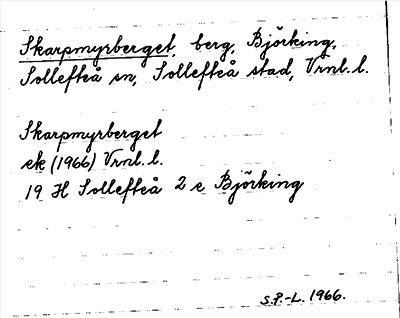 Skarpmyrberget, berg, Björking,
Sollefteå sn, Sollefteå stad, Vrnl. l.
Skarpmyrberget
ek (1966) Vrnl. l.
19 H Sollefteå 2 e Björking
S.P.-L. 1966.